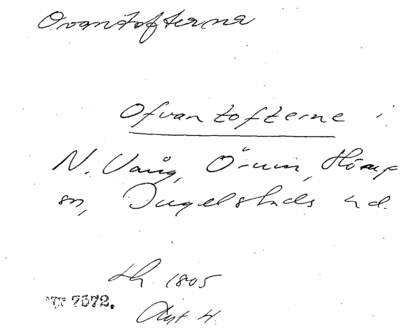 Ovantofterna
Ofvantofterne i
N. Vång, Örum, Höns
sn, Ingelstads hd.
Lh. 1805
7572.
Akt 4.